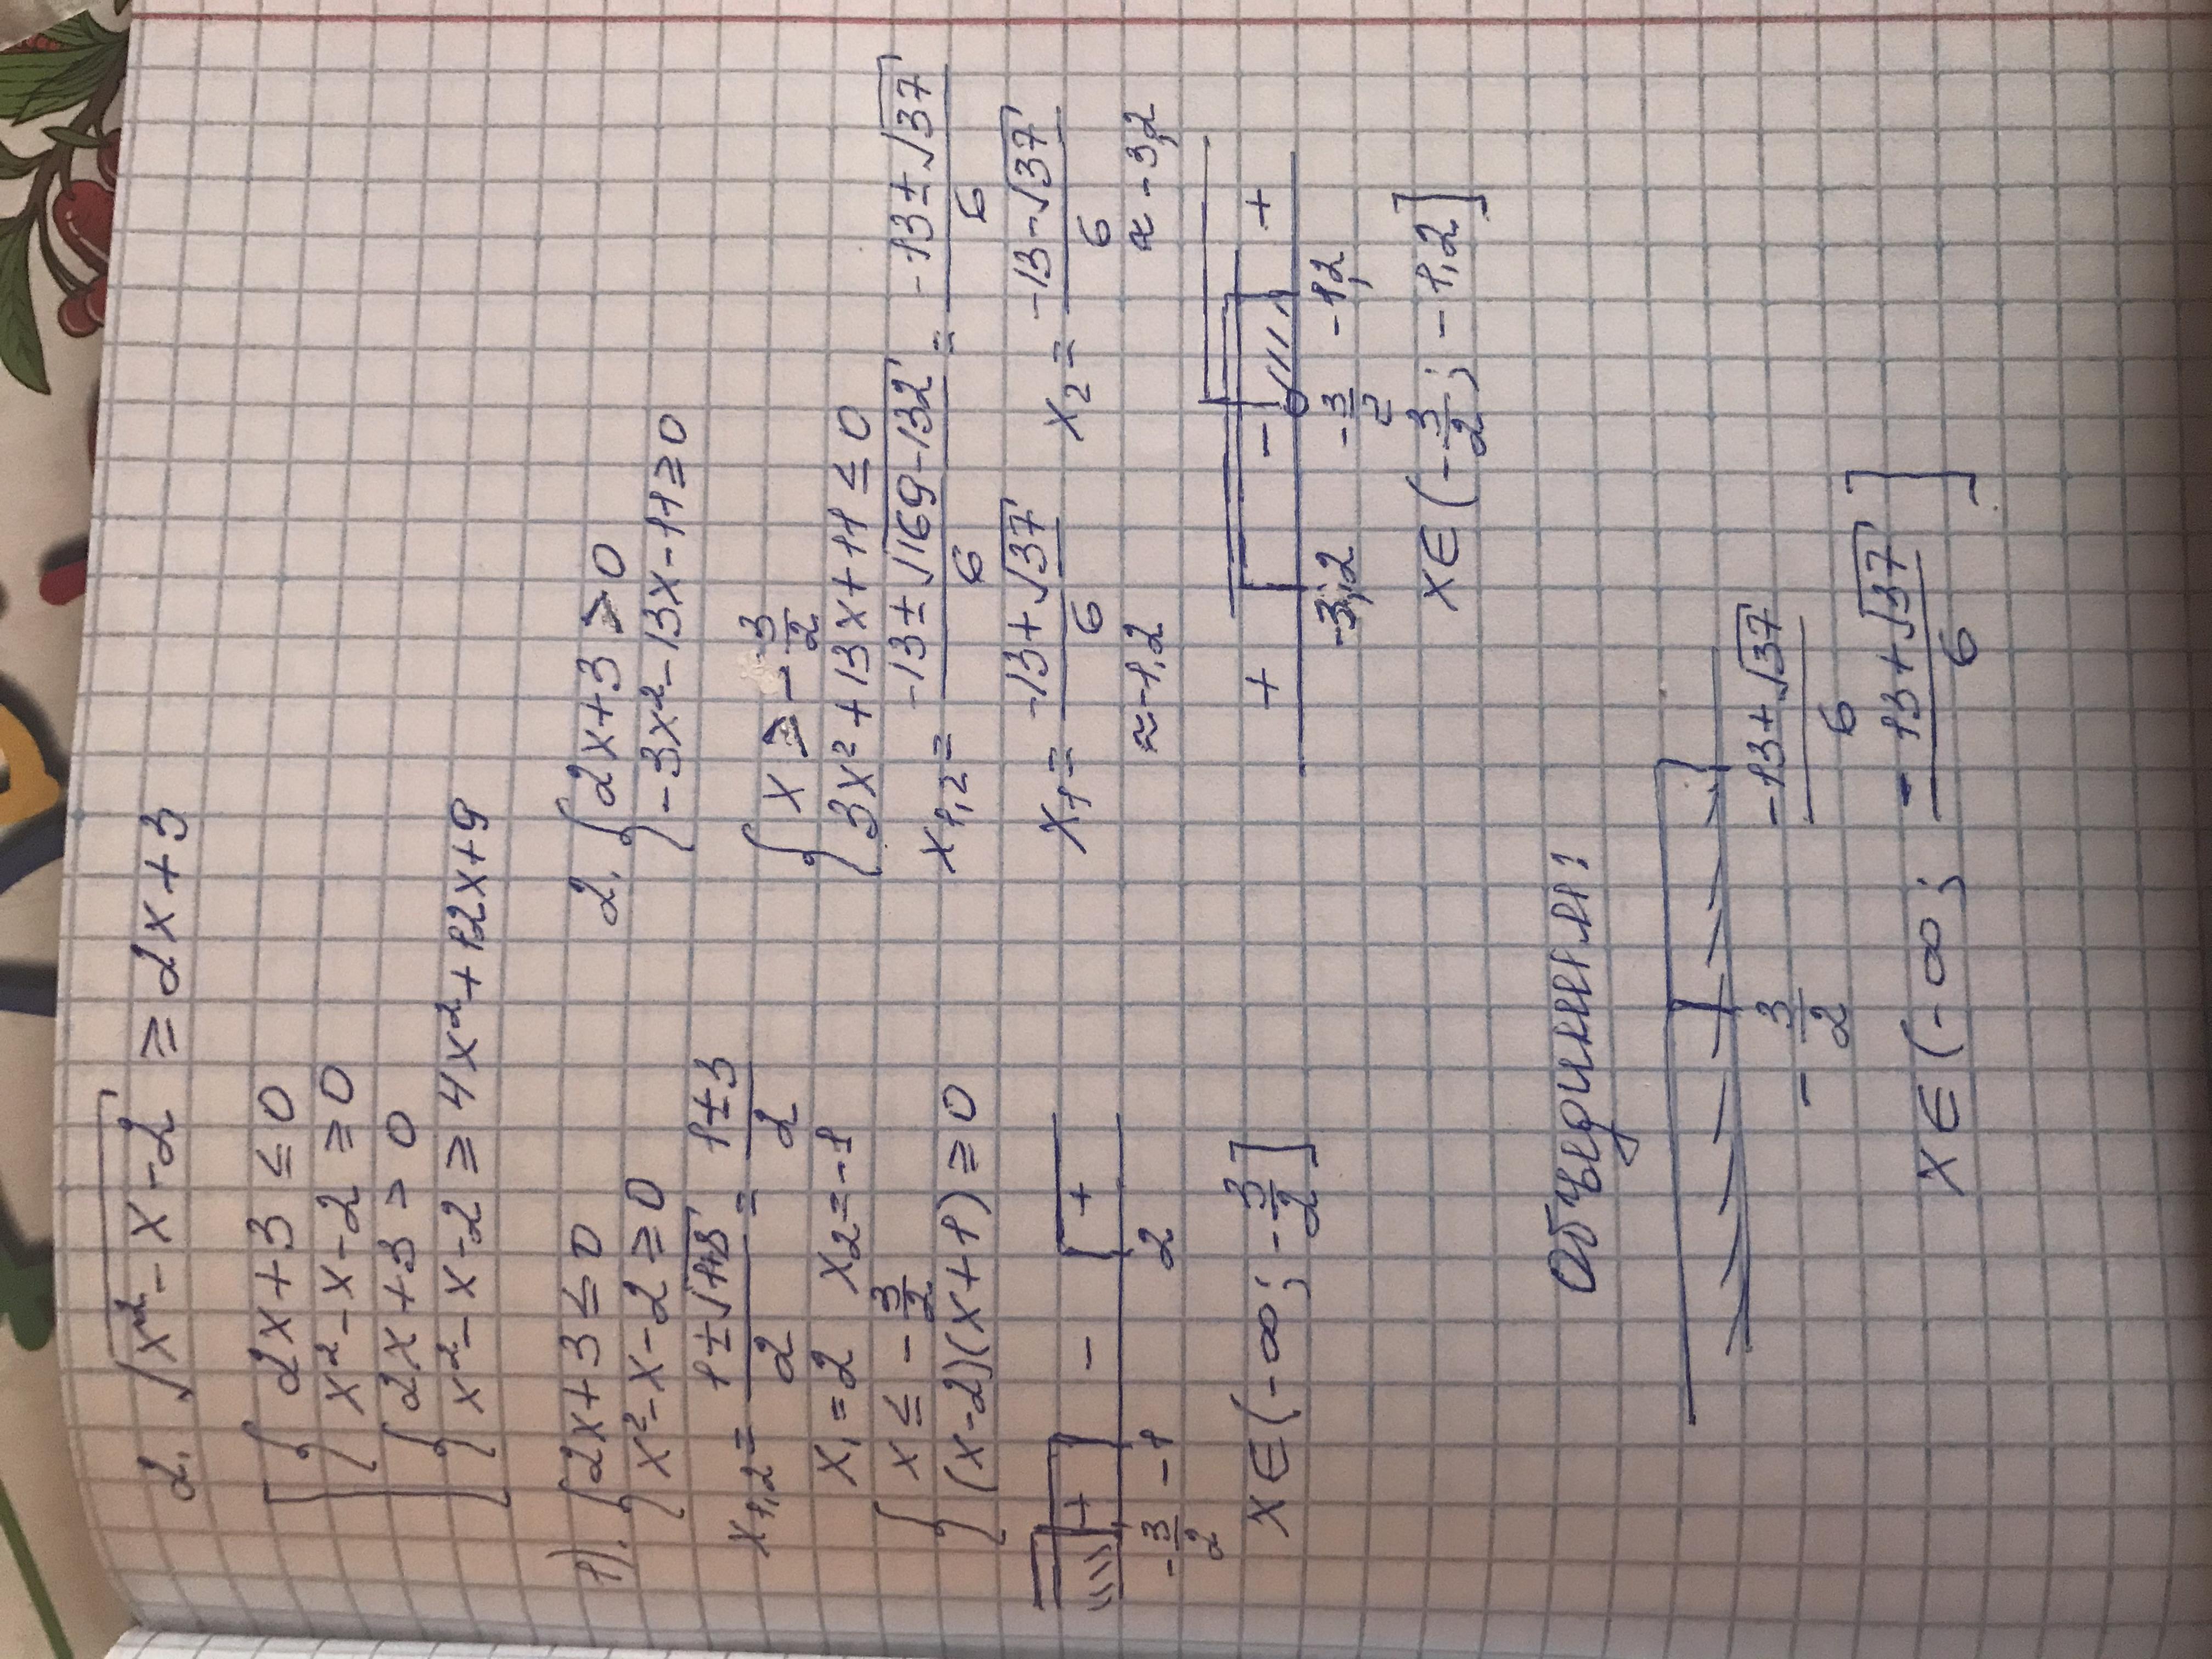 2. √(x²-x-2) ≥ 2x+3
[ { 2x+3 ≤ 0
x²-x-2 ≥ 0
{ 2x+3 > 0
x²-x-2 ≥ 4x²+12x+9
1). { 2x+3 ≤ 0
x²-x-2 ≥ 0
x₁,₂ = (1±√(1+8))/2 = (1±3)/2
x₁ = 2 x₂ = -1
{ x ≤ -3/2
(x-2)(x+1) ≥ 0
+ - +
-3/2 -1 2
x ∈ (-∞; -3/2]
2. { 2x+3 > 0
-3x²-13x-11 ≥ 0
{ x > -3/2
3x²+13x+11 ≤ 0
x₁,₂ = (-13±√(169-132))/6 = (-13±√37)/6
x₁ = (-13+√37)/6 x₂ = (-13-√37)/6
≈ -1,2 ≈ -3,2
+ - +
-3,2 -3/2 -1,2
x ∈ (-3/2; -1,2]
Объединим:
-3/2 (-13+√37)/6
x ∈ (-∞; (-13+√37)/6]